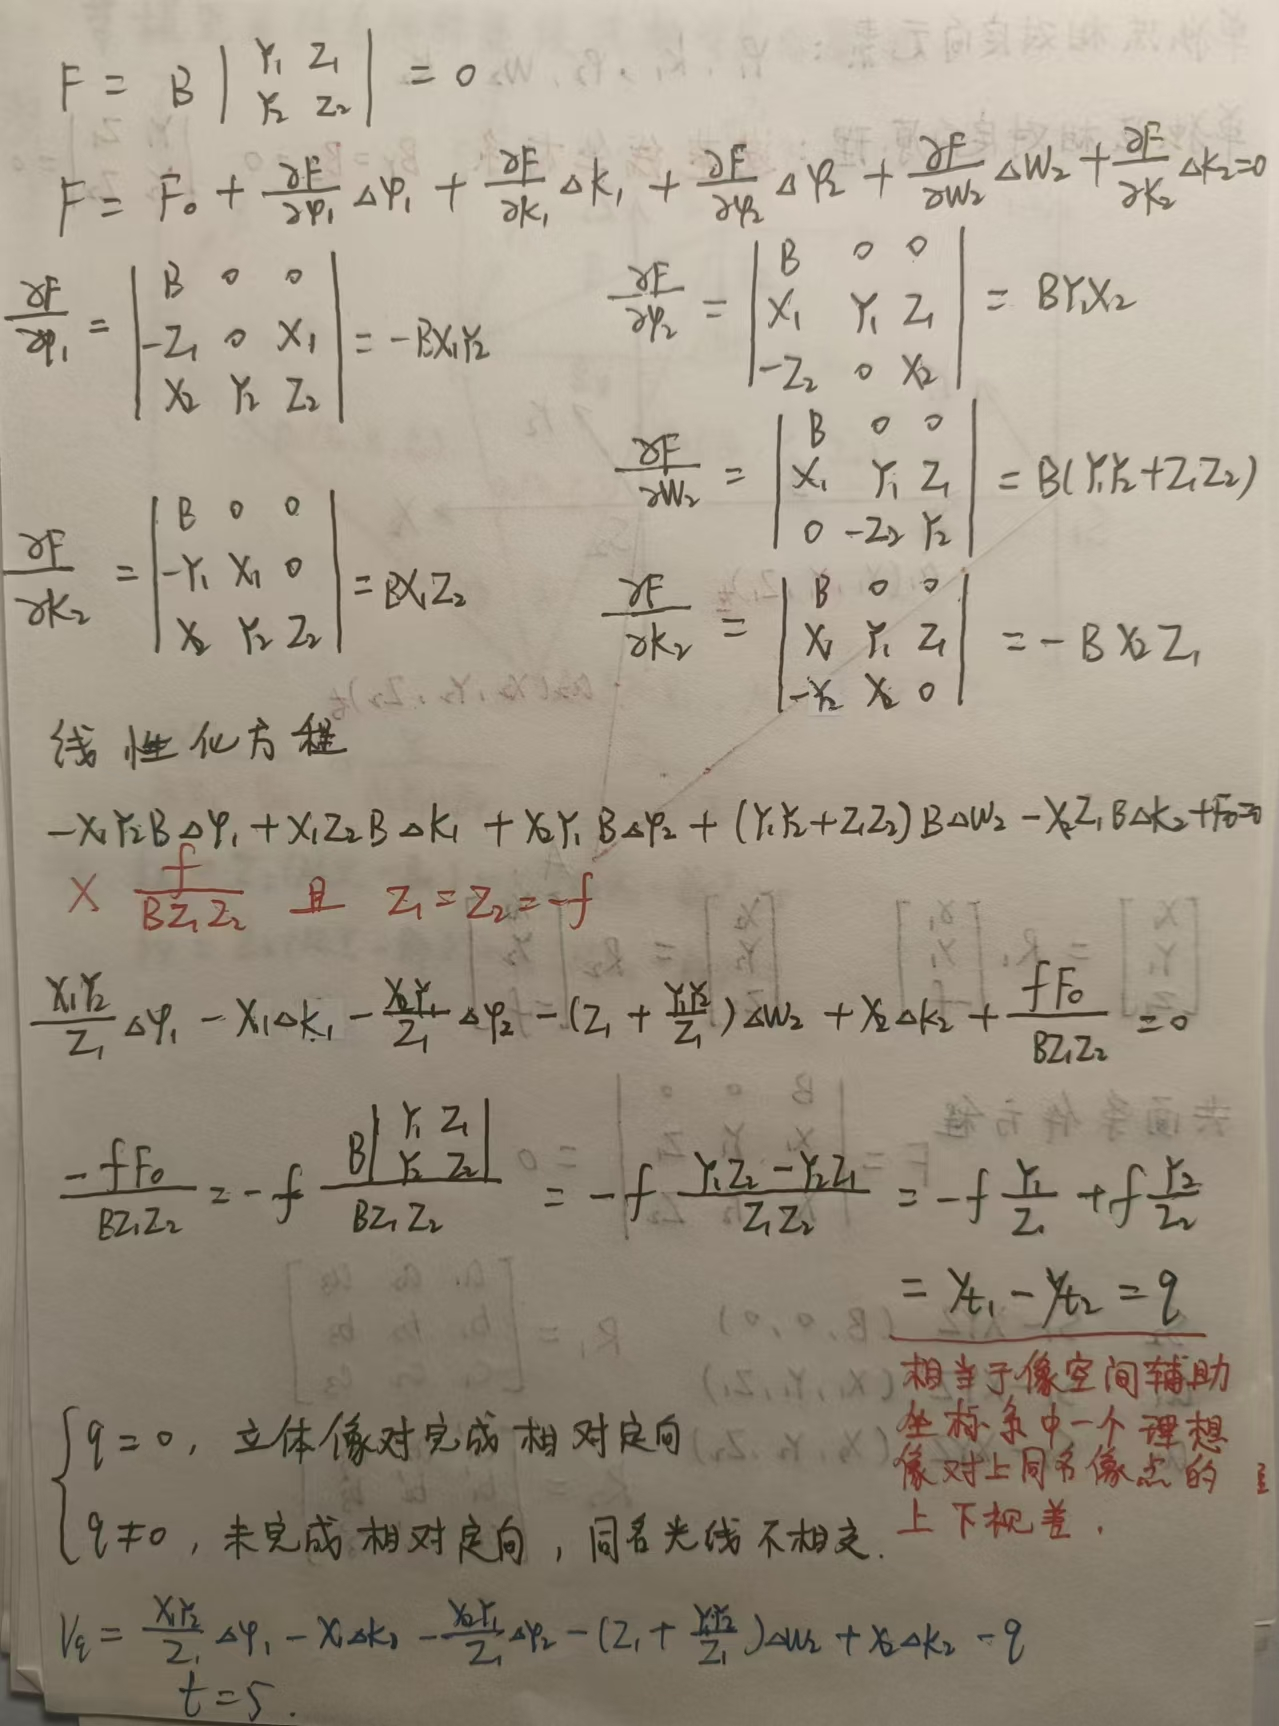 F = B | Y₁ Z₁ ; Y₂ Z₂ | = 0
F = F₀ + ∂F/∂φ₁ Δφ₁ + ∂F/∂k₁ Δk₁ + ∂F/∂φ₂ Δφ₂ + ∂F/∂w₂ Δw₂ + ∂F/∂k₂ Δk₂ = 0
∂F/∂φ₁ = | B 0 0 ; -Z₁ 0 X₁ ; X₂ Y₂ Z₂ | = -BX₁Y₂
∂F/∂φ₂ = | B 0 0 ; X₁ Y₁ Z₁ ; -Z₂ 0 X₂ | = BY₁X₂
∂F/∂w₂ = | B 0 0 ; X₁ Y₁ Z₁ ; 0 -Z₂ Y₂ | = B(Y₁Y₂+Z₁Z₂)
∂F/∂k₂ = | B 0 0 ; -Y₁ X₁ 0 ; X₂ Y₂ Z₂ | = BX₁Z₂
∂F/∂k₂ = | B 0 0 ; X₁ Y₁ Z₁ ; -Y₂ X₂ 0 | = -BX₂Z₁
线性化方程
-X₁Y₂BΔφ₁ + X₁Z₂BΔk₁ + X₂Y₁BΔφ₂ + (Y₁Y₂+Z₁Z₂)BΔw₂ - X₂Z₁BΔk₂ + F₀=0
× f/BZ₁Z₂ 且 Z₁=Z₂=-f
X₁Y₂/Z₁ Δφ₁ - X₁Δk₁ - X₂Y₁/Z₁ Δφ₂ - (Z₁ + Y₁Y₂/Z₁)Δw₂ + X₂Δk₂ + fF₀/BZ₁Z₂ = 0
-fF₀/BZ₁Z₂ = -f B| Y₁ Z₁ ; Y₂ Z₂ |/BZ₁Z₂ = -f (Y₁Z₂-Y₂Z₁)/Z₁Z₂ = -f Y₁/Z₁ + f Y₂/Z₂
= yt₁ - yt₂ = q
相当于像空间辅助
坐标系中一个理想
像对上同名像点的
上下视差.
q=0, 立体像对完成相对定向
q≠0, 未完成相对定向, 同名光线不相交.
Vq = X₁Y₂/Z₁ Δφ₁ - X₁Δk₁ - X₂Y₁/Z₁ Δφ₂ - (Z₁ + Y₁Y₂/Z₁)Δw₂ + X₂Δk₂ - q
t=5.